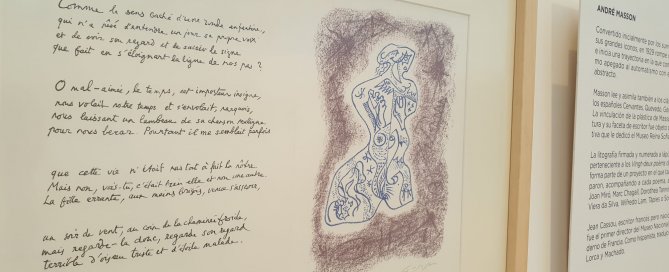 Comme le sens caché d'une ronde enfantine,
qui n'a rêvé d'entendre un jour sa propre voix
et de voir son regard et de saisir le signe
que fait en s'éloignant la ligne de nos pas ?
O mal-aimée, le temps, est imposteur insigne,
nous volait notre temps et s'envolait, narquois,
nous laissant un lambeau de sa chanson maligne
pour nous bercer. Pourtant il me semblait parfois
que cette vie n'était pas tout à fait la nôtre.
Mais non, vois-tu, c'était bien elle et non une autre.
La fille errante, aux mains
un soir de vent, au coin de la cheminée froide,
mais regarde-la donc, regarde son regard
terrible d'oiseau triste et d'étoile malade.
ANDRÉ MASSON
Convertido inicialmente por los sur
sus grandes iconos, en 1929 rompe
e inicia una trayectoria en la que com
mo apegado al automatismo como
abstracto.
Masson lee y asimila también a los c
los españoles Cervantes, Quevedo, Gón
La vinculación de la plástica de Masso
tura y su faceta de escritor fue objeto
tiva que le dedicó el Museo Reina Sofía
La litografía firmada y numerada a
perteneciente a los Vingt-deux poèmes
forma parte de un proyecto en el que
paron, acompañando a cada poema,
Joan Miró, Marc Chagall, Dorothea Tanning
Vieira da Silva, Wifredo Lam, Tàpies o So
Jean Cassou, escritor francés pero nacido
fue el primer director del Museo Nacional
derno de Francia. Como hispanista, tradujo
Lorca y Machado.